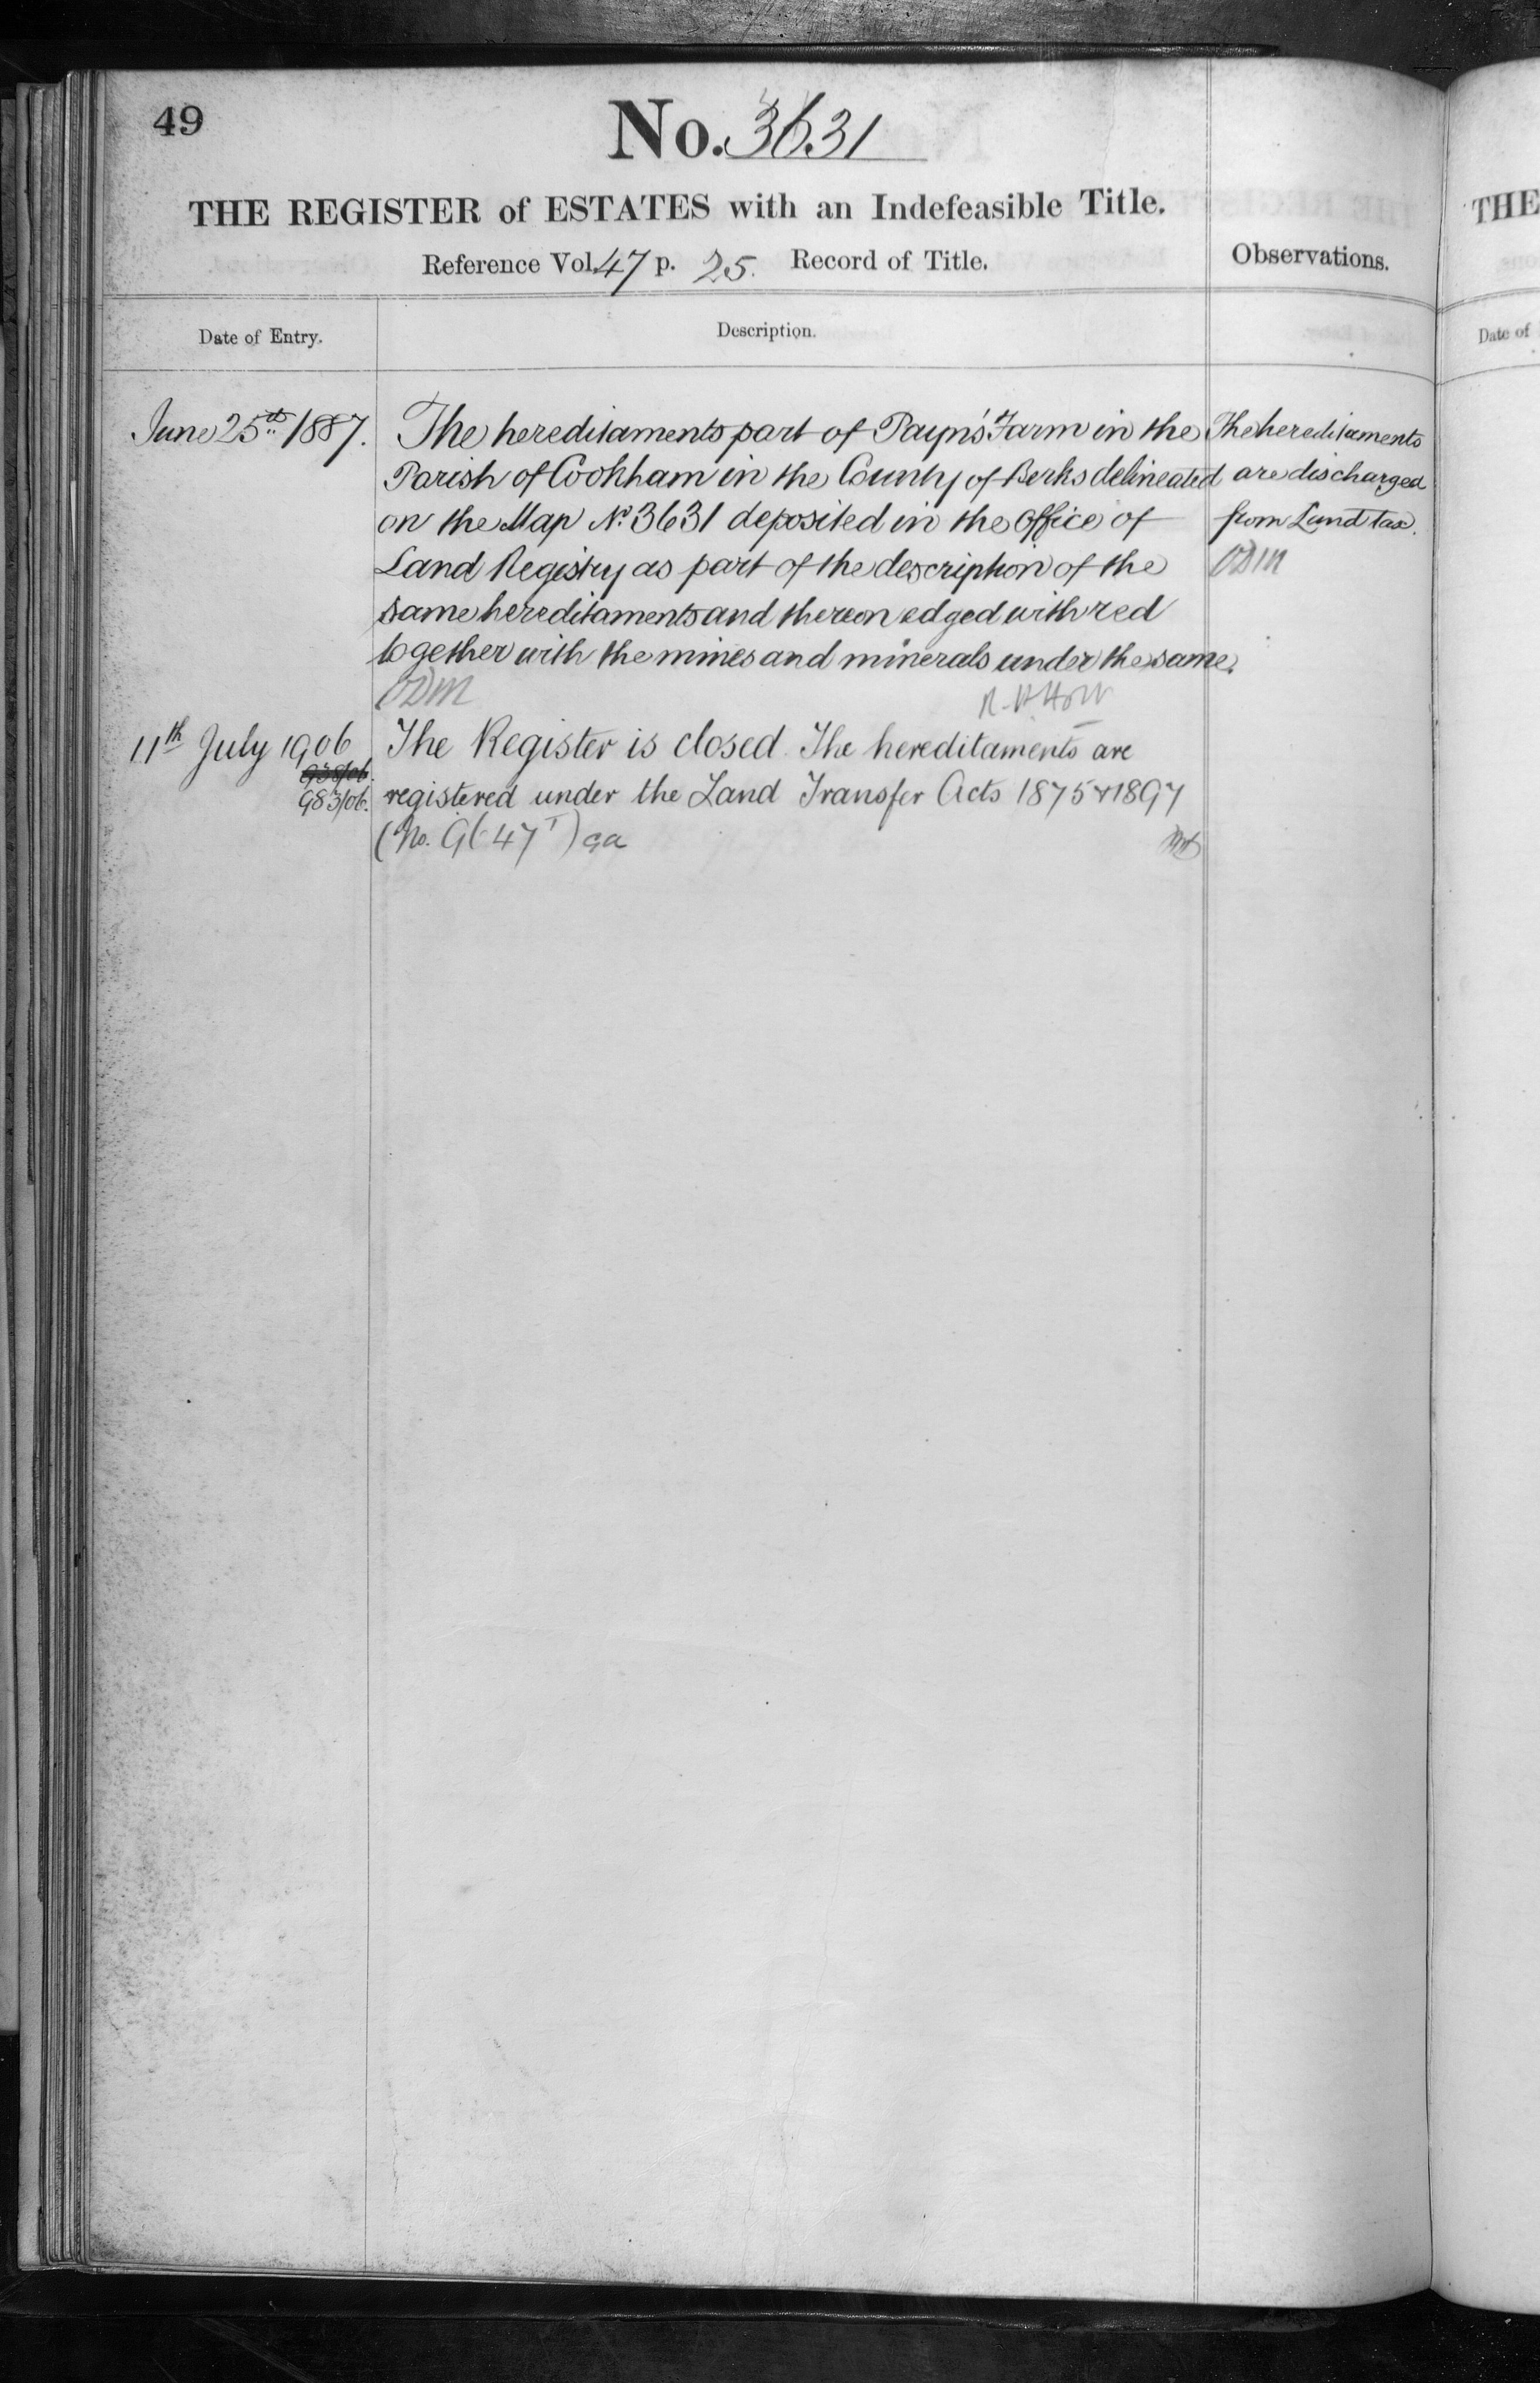 49
No. 3631
THE REGISTER of ESTATES with an Indefeasible Title.
Reference Vol. 47 p. 25. Record of Title.
Observations.
Date of Entry.
Description.
June 25th 1887.
The hereditaments part of Payn's Farm in the
Parish of Cookham in the County of Berks delineated
on the Map No. 3631 deposited in the Office of
Land Registry as part of the description of the
same hereditaments and thereon edged with red
together with the mines and minerals under the same.
The hereditaments
are discharged
from Land tax.
11th July 1906
938/06.
983/06.
The Register is closed. The hereditaments are
registered under the Land Transfer Acts 1875 & 1897
(No.
THE
Date of